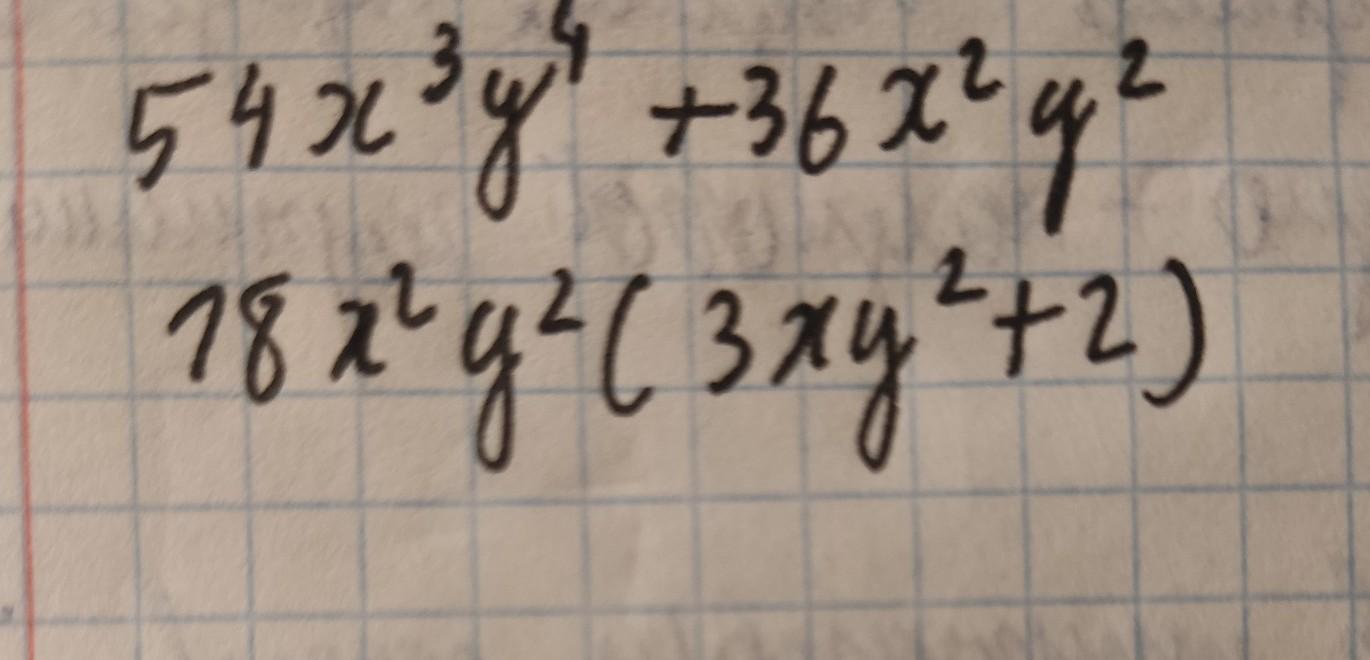 54x³y⁴ +36x²y²
18x²y²(3xy²+2)